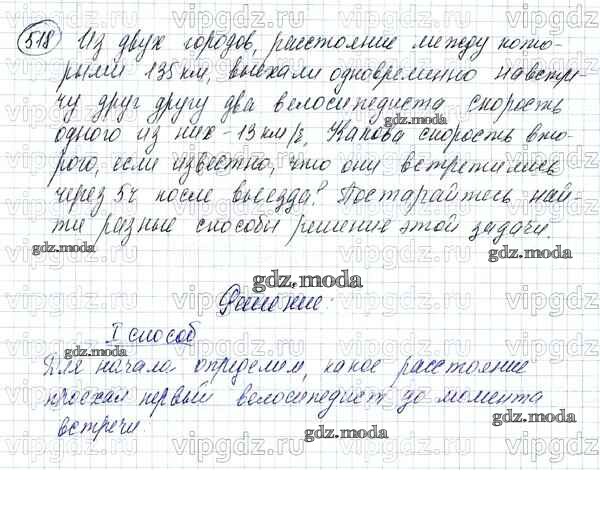 518 Из двух городов, расстояние между кото-
рыми 135 км, выехали одновременно навстре-
чу друг другу два велосипедиста скорость
одного из них - 13 км/ч, Какова скорость вто-
рого, если известно, что они встретились
через 5ч после выезда? Постарайтесь най-
ти разные способы решение этой задачи.
Решение:
I способ
Для начала определим, какое расстояние
проехал первый велосипедист до момента
встречи
gdz.moda
vipgdz.ru